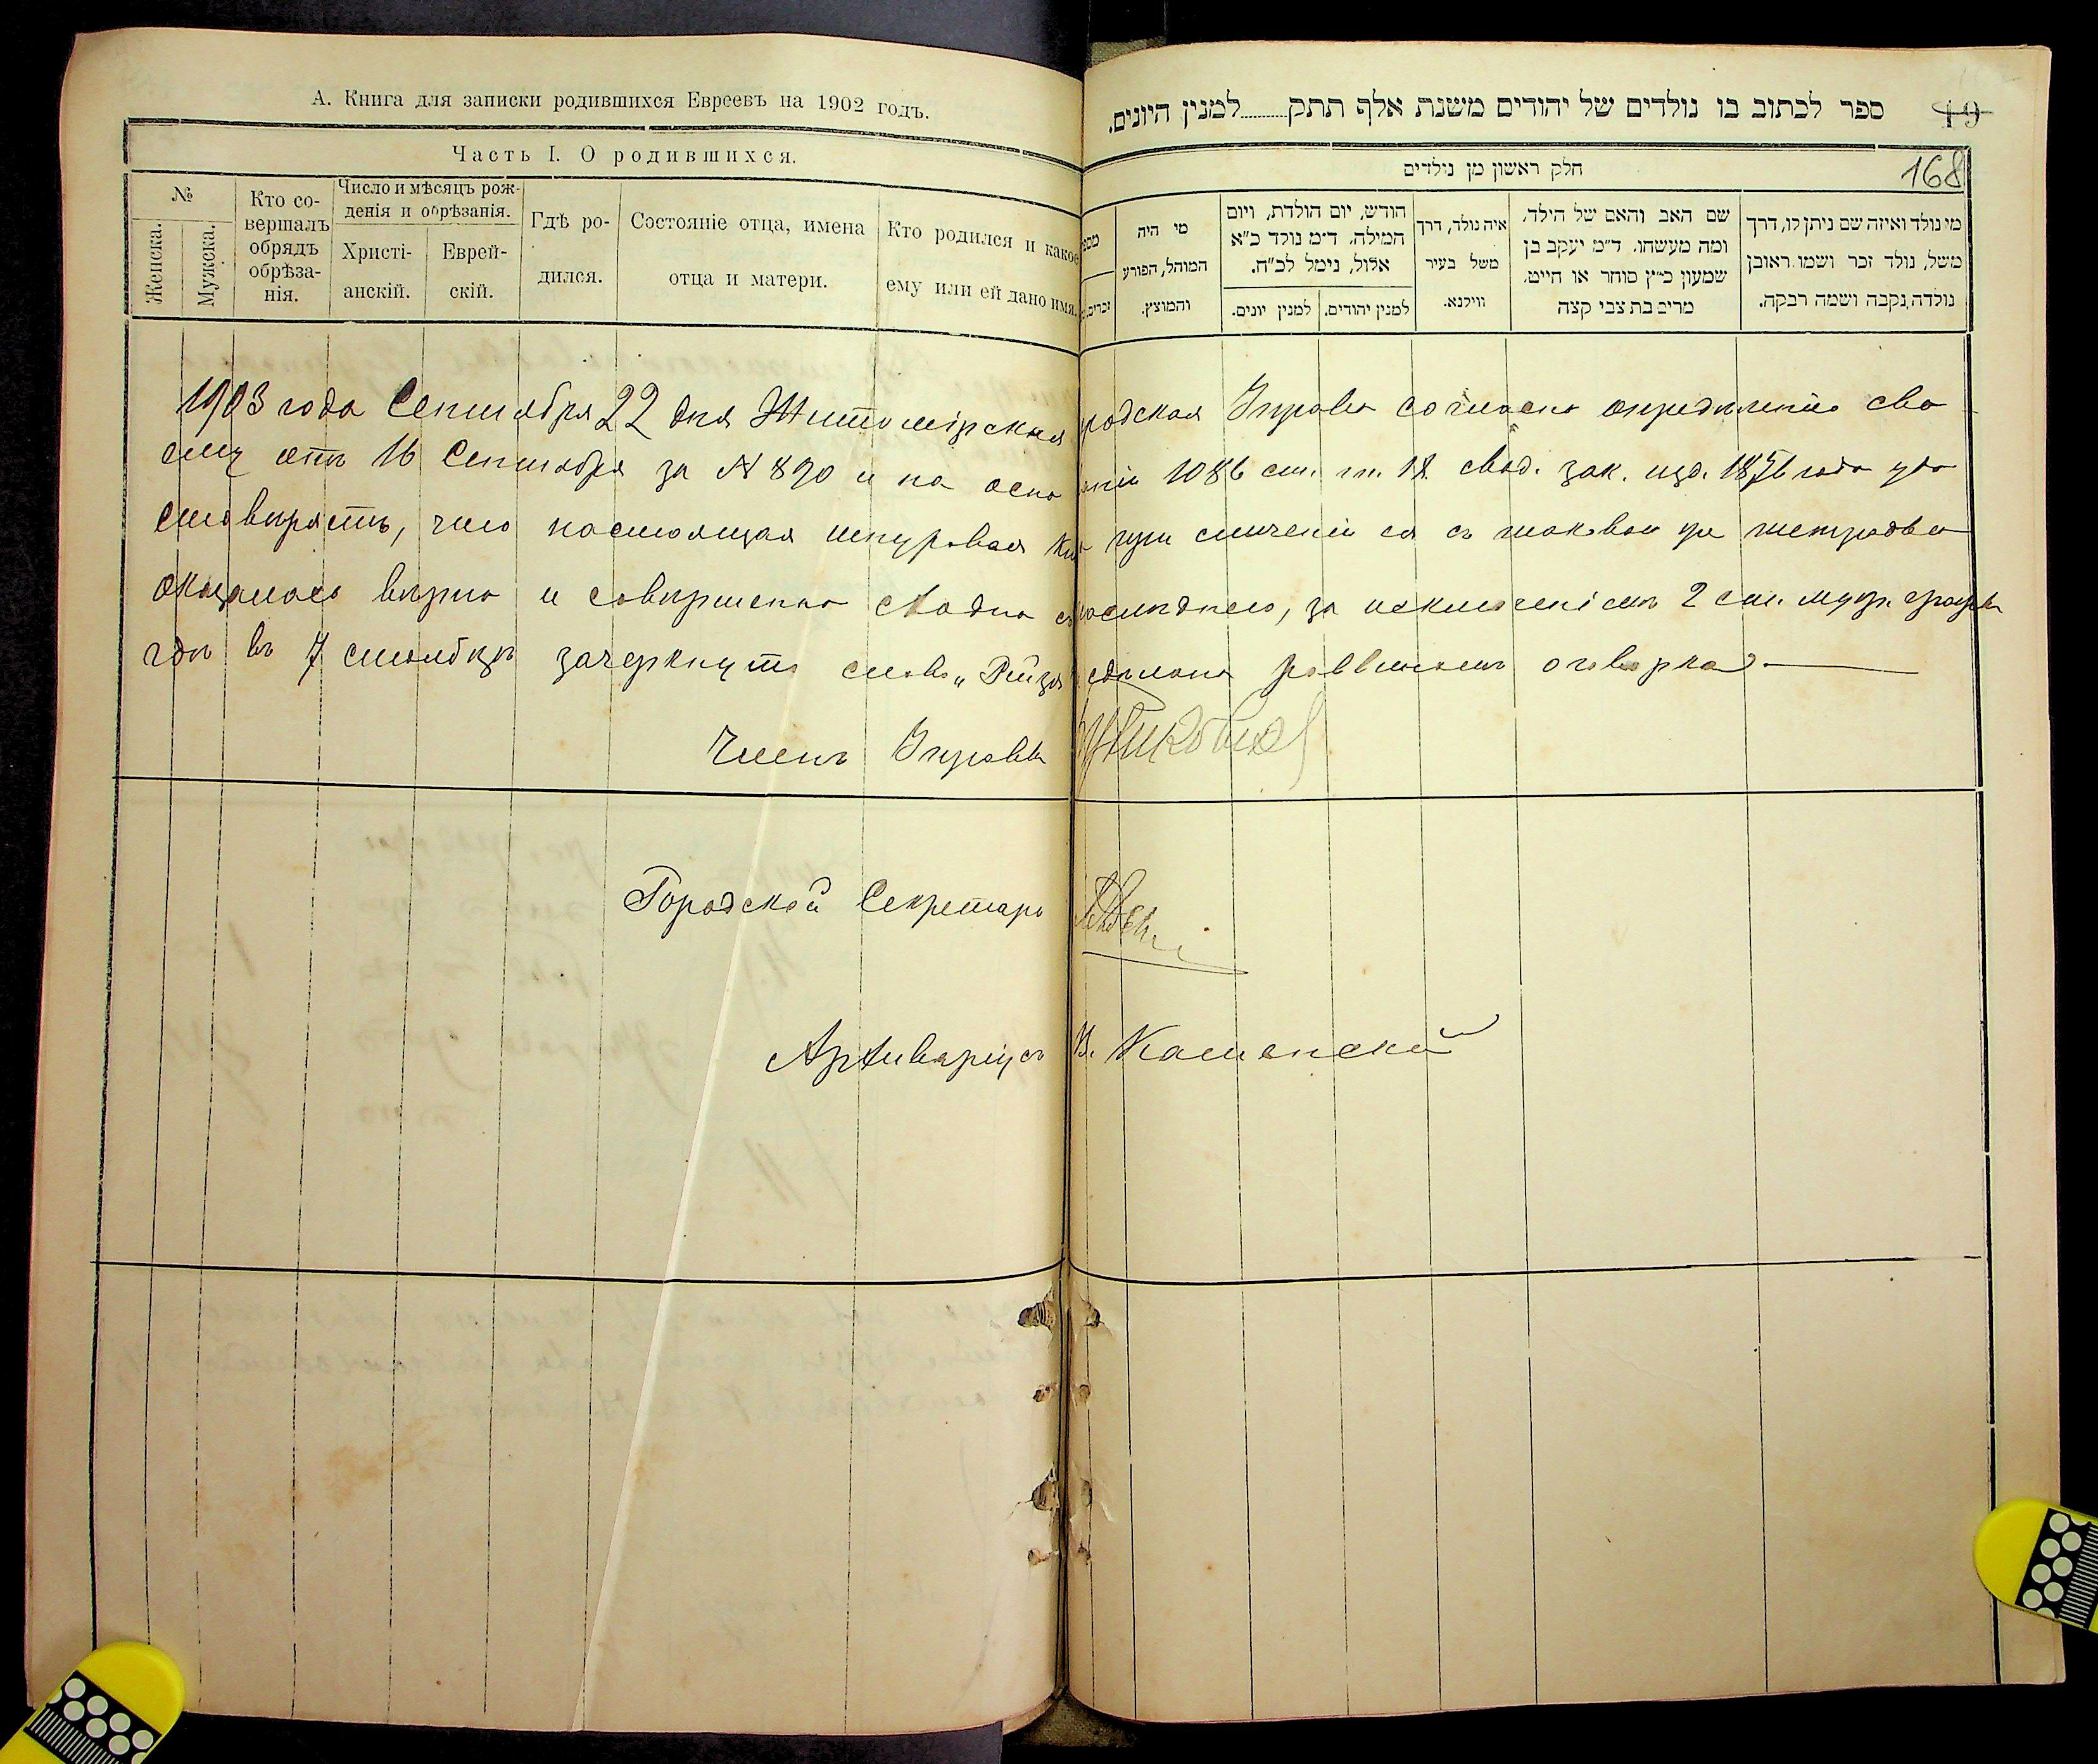 А. Книга для записки родившихся Евреевъ на 1902 годъ.
Часть I. О родившихся.
№
Женска.
Мужска.
Кто со-
вершалъ
обрядъ
обрѣза-
нія.
Число и мѣсяцъ рож-
денія и обрѣзанія.
Христі-
анскій.
Еврей-
скій.
Гдѣ ро-
дился.
Состояніе отца, имена
отца и матери.
Кто родился и какое
ему или ей дано имя.
ספר לכתוב בו נולדים של יהודים משנת אלף תתק..........למנין היונים.
19
168
חלק ראשון מן נולדים
מי נולד ואיזה שם ניתן לו, דרך
משל, נולד זכר ושמו ראובן
נולדה נקבה ושמה רבקה.
שם האב והאם של הילד,
ומה מעשהו. ד״מ יעקב בן
שמעון כ״ץ סוחר או חייט,
מרים בת צבי קצה
איה נולד, דרך
משל בעיר
ווילנא.
הודש, יום הולדת, ויום
המילה. ד״מ נולד כ״א
אלול, נימל לכ״ח.
למנין יהודים.
למנין יונים.
מי היה
המוהל, הפורע
והמוצץ.
1903 года Сентября 22 дня Житомірская родская Управа согласно опредѣленію сво
ему отъ 16 Сентября за № 890 и на осно аніи 1086 ст. т. IX свод. зак. изд. 1876 года удо
стовѣряетъ, что настоящая шнуровая кн при сличеніи ея съ таковою же тетрадью
оказалась вѣрна и совершенно сходна съ послѣднею, за исключеніемъ 2 ст. муж. графы
гдѣ въ 7 столбцѣ зачеркнуто слово „Рейзя сдѣлана раввиномъ оговорка.
Членъ Управы
Городской Секретарь
Архиваріусъ В. Каменскій